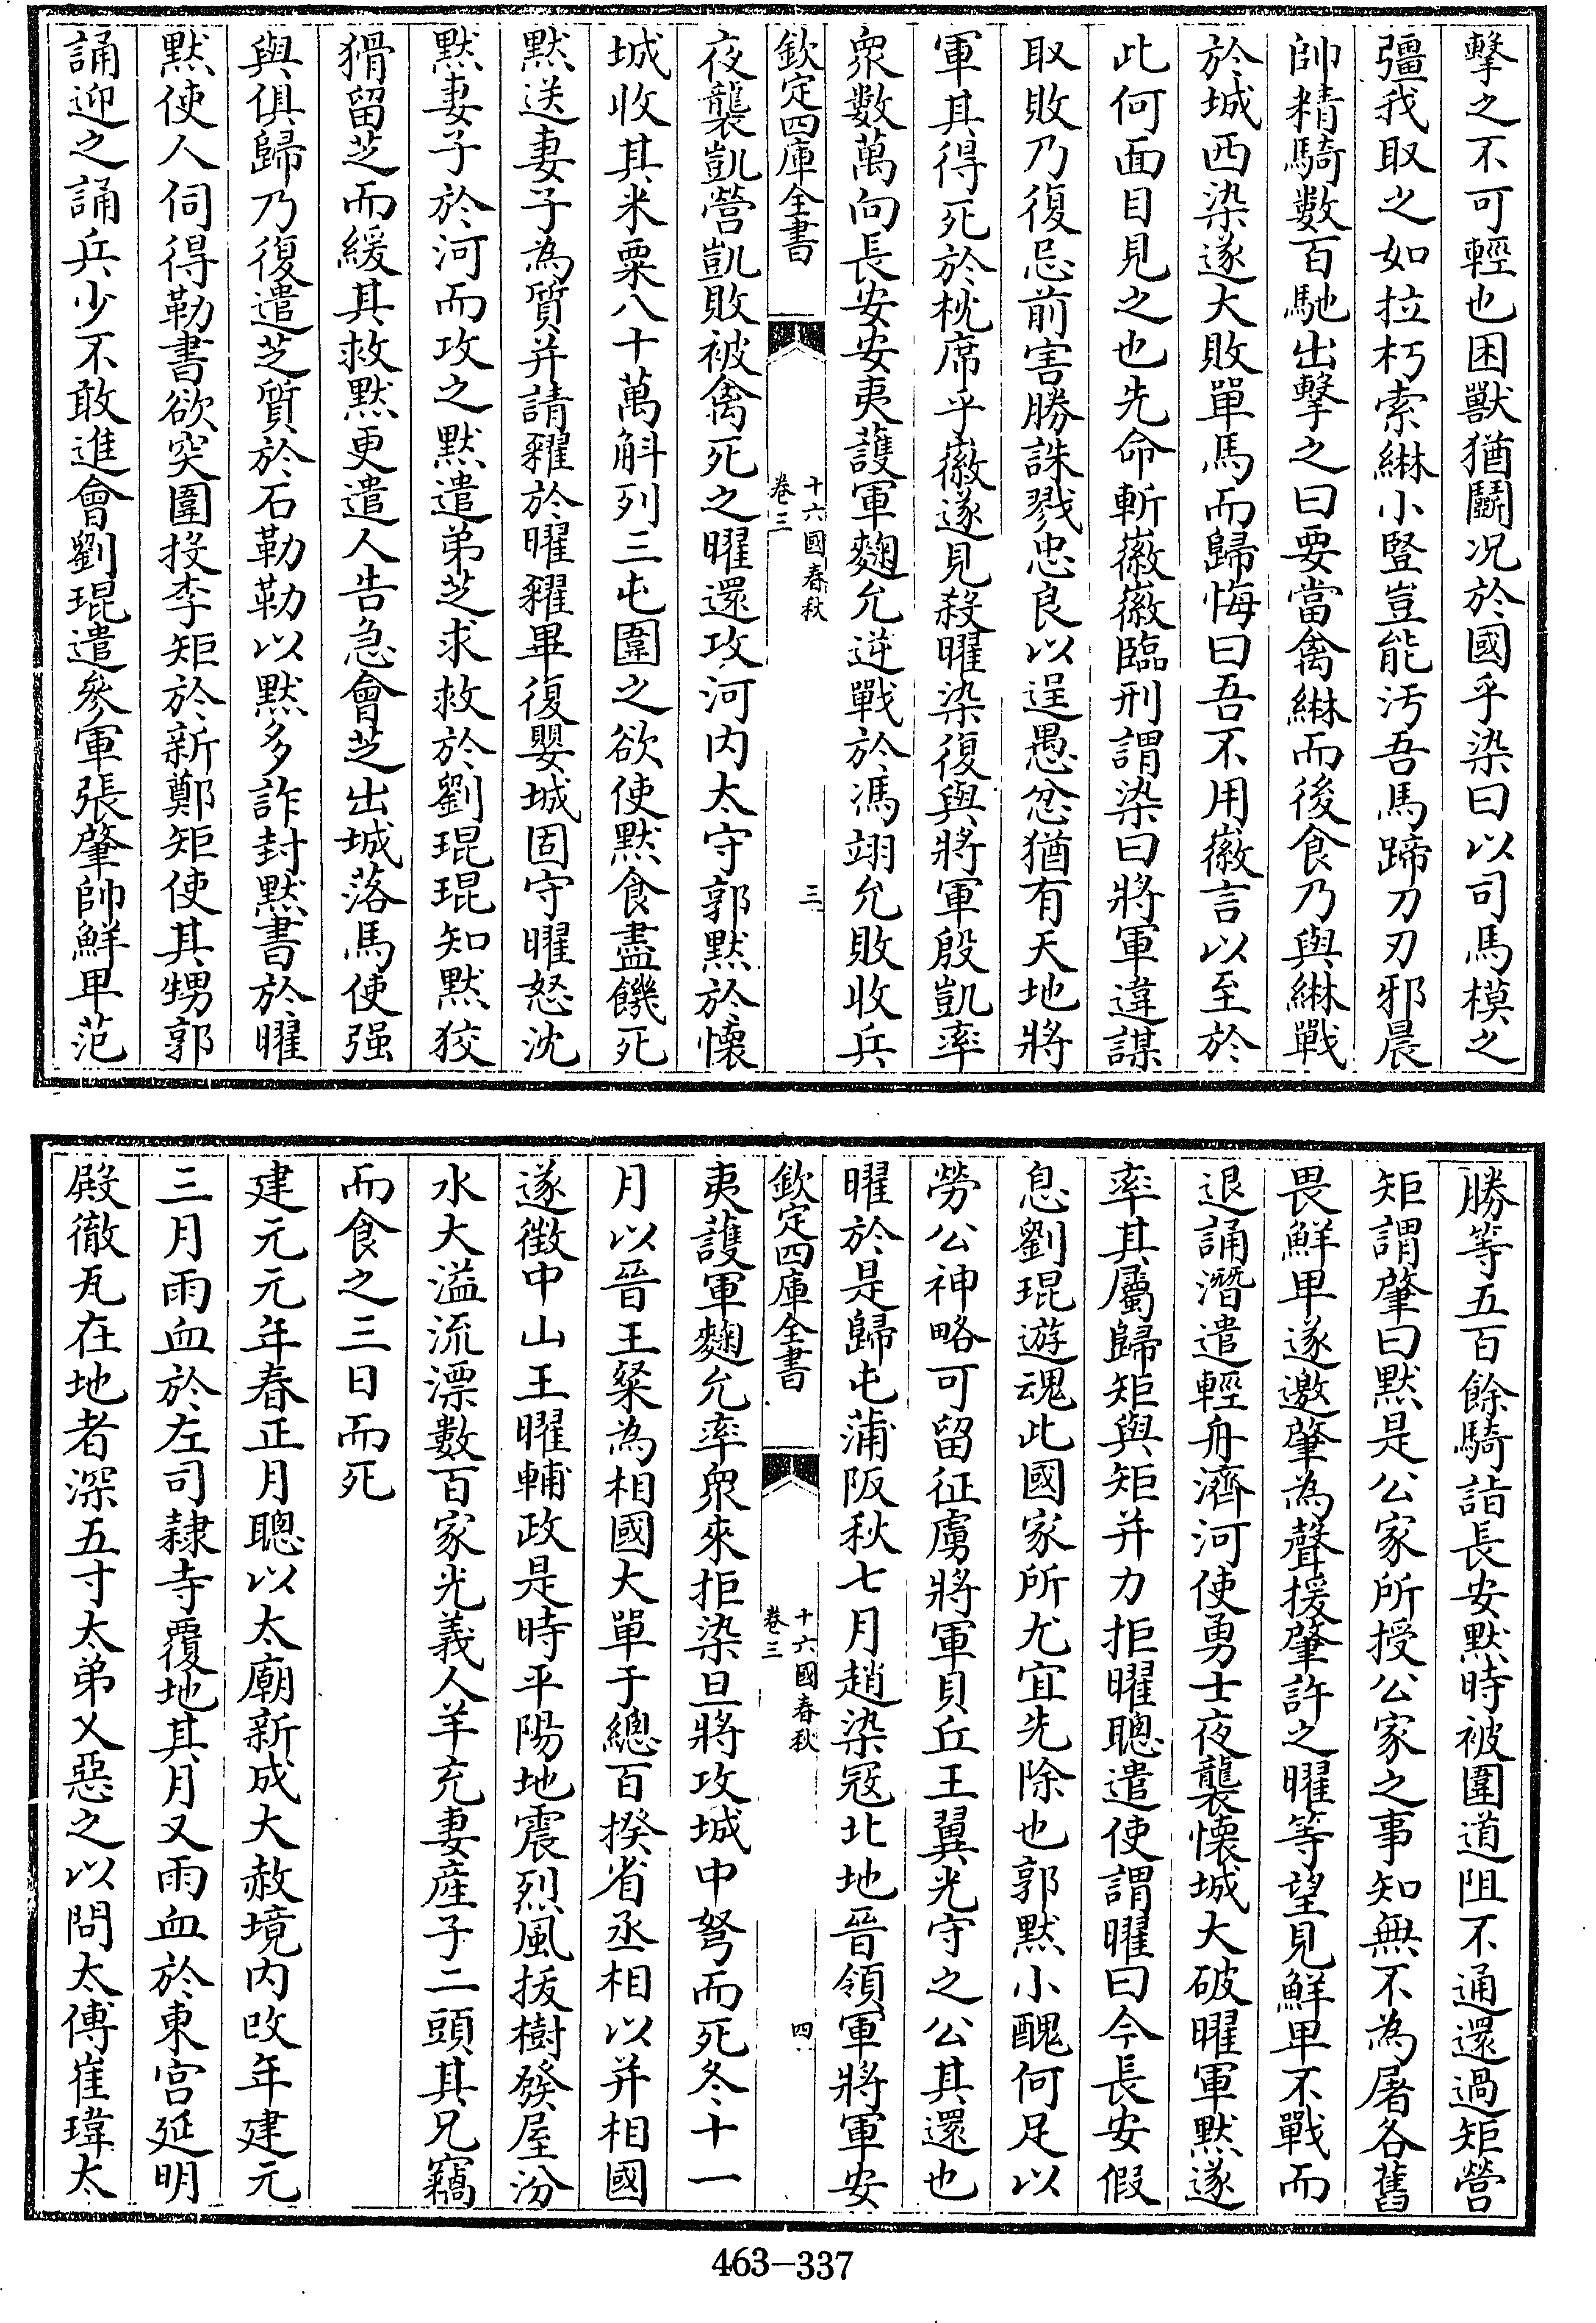 擊之不可輕也困獸猶鬭况於國乎染曰以司馬模之
彊我取之如拉朽索綝小豎豈能汚吾馬蹄刀刃邪晨
帥精騎數百馳出擊之曰要當禽綝而後食乃與綝戰
於城西染遂大敗單馬而歸悔曰吾不用徽言以至於
此何面目見之也先命斬徽徽臨刑謂染曰將軍違謀
取敗乃復忌前害勝誅戮忠良以逞愚忿猶有天地將
軍其得死於枕席乎徽遂見殺曜染復與將軍殷凱率
衆數萬向長安安夷護軍麴允逆戰於馮翊允敗收兵
欽定四庫全書
十六國春秋
卷三
三
夜襲凱營凱敗被禽死之曜還攻河内太守郭默於懷
城收其米粟八十萬斛列三屯圍之欲使默食盡饑死
默送妻子為質并請糴於曜糴畢復嬰城固守曜怒沈
默妻子於河而攻之默遣弟芝求救於劉琨琨知默狡
猾留芝而緩其救默更遣人告急會芝出城落馬使强
與俱歸乃復遣芝質於石勒勒以默多詐封默書於曜
默使人伺得勒書欲突圍投李矩於新鄭矩使其甥郭
誦迎之誦兵少不敢進會劉琨遣參軍張肇帥鮮卑范
勝等五百餘騎詣長安默時被圍道阻不通還過矩營
矩謂肇曰默是公家所授公家之事知無不為屠各舊
畏鮮卑遂邀肇為聲援肇許之曜等望見鮮卑不戰而
退誦潛遣輕舟濟河使勇士夜襲懷城大破曜軍默遂
率其屬歸矩與矩并力拒曜聰遣使謂曜曰今長安假
息劉琨遊魂此國家所尤宜先除也郭默小醜何足以
勞公神略可留征虜將軍貝丘王翼光守之公其還也
曜於是歸屯蒲阪秋七月趙染寇北地晉領軍將軍安
欽定四庫全書
十六國春秋
卷三
四
夷護軍麴允率衆來拒染旦將攻城中弩而死冬十一
月以晉王粲為相國大單于總百揆省丞相以并相國
遂徵中山王曜輔政是時平陽地震烈風拔樹發屋汾
水大溢流漂數百家光義人羊充妻産子二頭其兄竊
而食之三日而死
建元元年春正月聰以太廟新成大赦境内改年建元
三月雨血於左司隷寺覆地其月又雨血於東宫延明
殿徹瓦在地者深五寸太弟乂惡之以問太傅崔瑋太
463-337